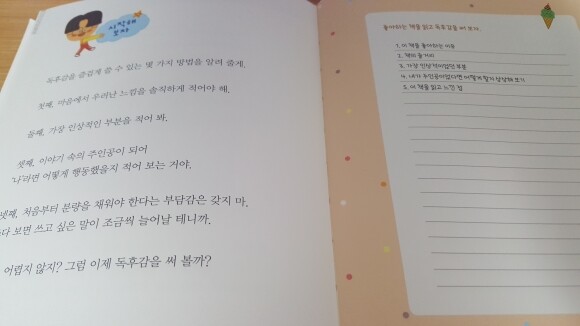 시작해
보자
독후감을 즐겁게 쓸 수 있는 몇 가지 방법을 알려 줄게.
첫째, 마음에서 우러난 느낌을 솔직하게 적어야 해.
둘째, 가장 인상적인 부분을 적어 봐.
셋째, 이야기 속의 주인공이 되어
'나'라면 어떻게 행동했을지 적어 보는 거야.
넷째, 처음부터 분량을 채워야 한다는 부담감은 갖지 마.
보면 쓰고 싶은 말이 조금씩 늘어날 테니까.
어렵지 않지? 그럼 이제 독후감을 써 볼까?
좋아하는 책을 읽고 독후감을 써 보자.
1. 이 책을 좋아하는 이유
2. 책의 줄거리
3. 가장 인상적이었던 부분
4. 내가 주인공이었다면 어떻게 할지 상상해 보기
5. 이 책을 읽고 느낀 점